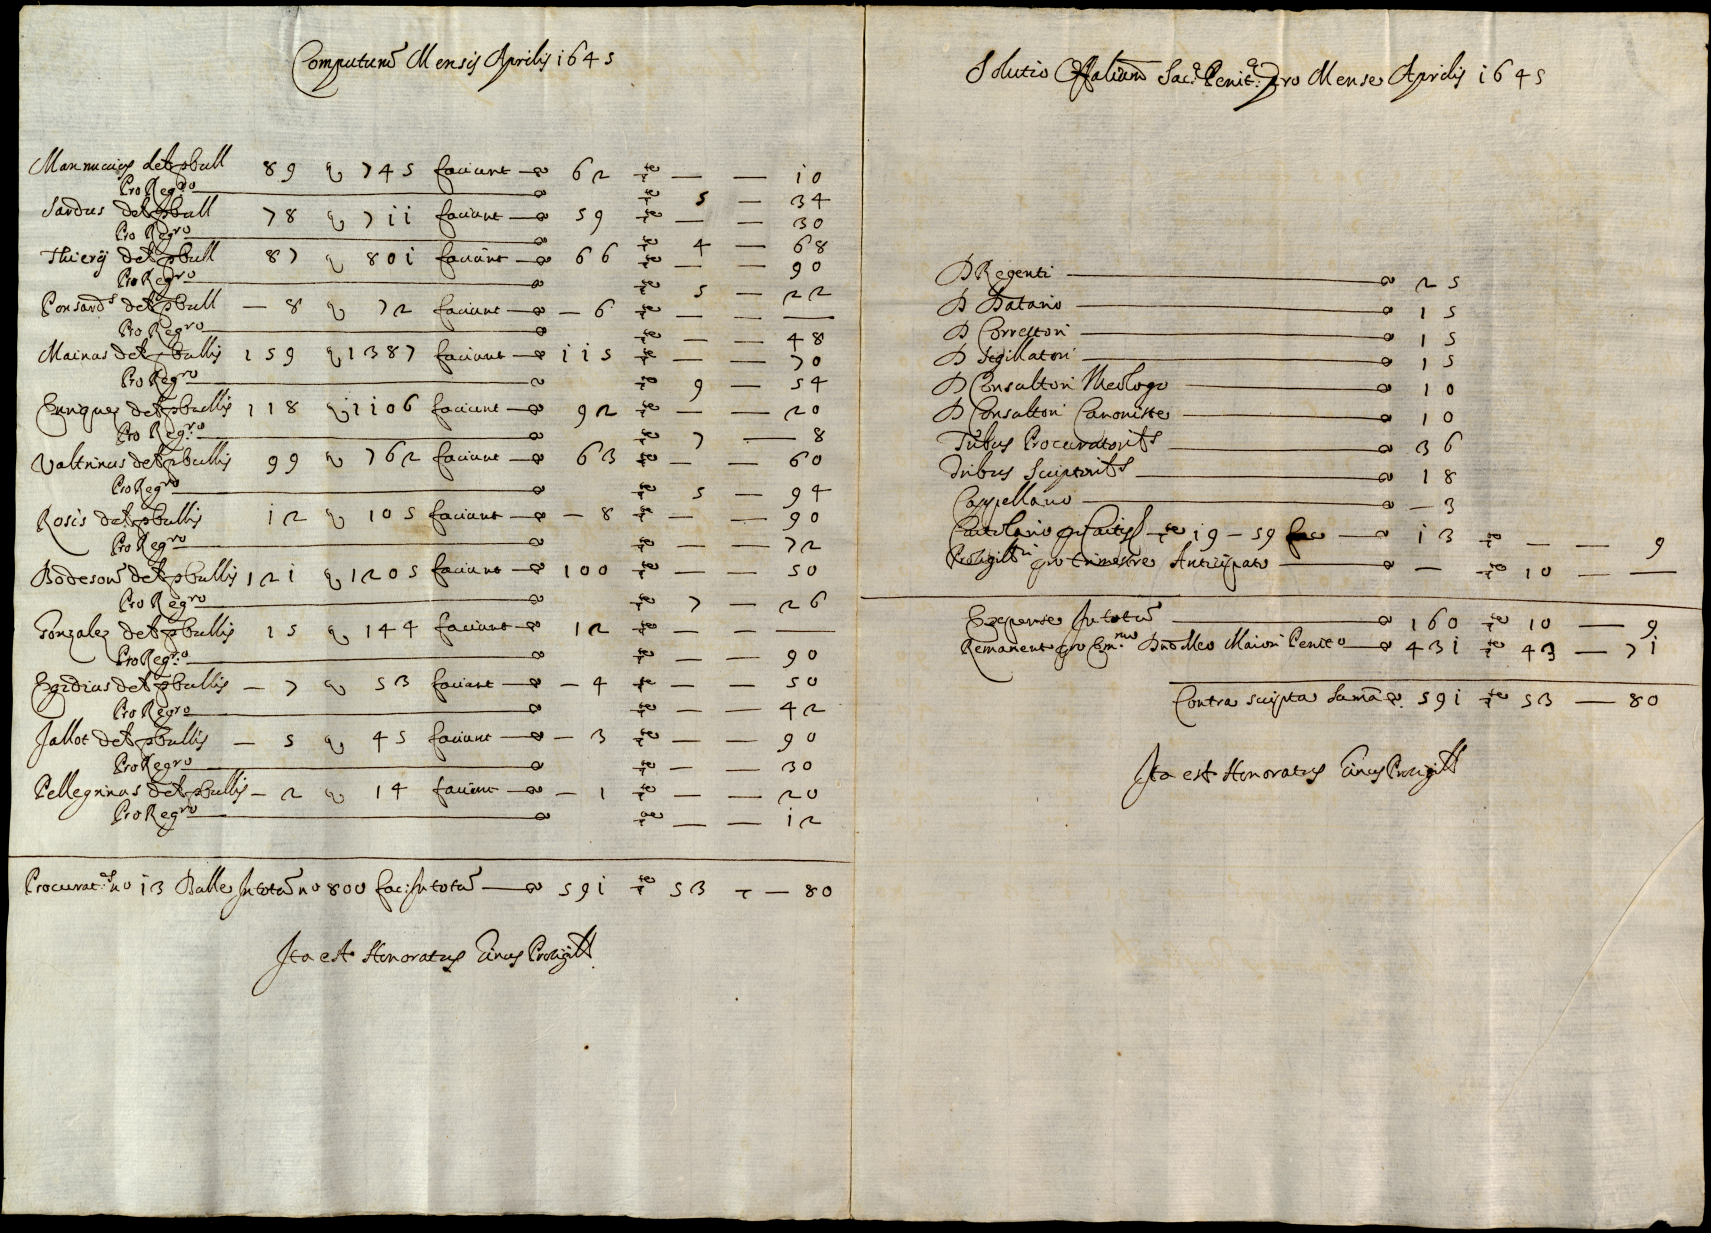 Computum Mensis Aprilis 1645
Mannucius det pbull 89 q 745 faciunt 62 te — — 10
Pro Regro te 5 — 34
Sardus det pbull 78 q 711 faciunt 59 te — — 30
Pro Regro te 4 — 68
Thierij det pbull 87 q 801 faciunt 66 te — — 90
Pro Regro te 5 — 22
Ponsards det pbull — 8 q 72 faciunt — 6 te — — —
Pro Regro te — — 48
Mainas det pbullis 159 q 1387 faciunt 115 te — — 70
Pro Regro te 9 — 54
Enriques det pbullis 118 q 1106 faciunt 92 te — — 20
Pro Regro te 7 — 8
Valtrinus det pbullis 99 q 762 faciunt 63 te — — 60
Pro Regro te 5 — 94
Rosis det pbullis 12 q 105 faciunt — 8 te — — 90
Pro Regro te — — 72
Bodeson det pbullis 121 q 1205 faciunt 100 te — — 50
Pro Regro te 7 — 26
Gonzalez det pbullis 15 q 144 faciunt 12 te — — —
Pro Regro te — — 90
Egidius det pbullis — 7 q 53 faciunt — 4 te — — 50
Pro Regro te — — 42
Jallot det pbullis — 5 q 45 faciunt — 3 te — — 90
Pro Regro te — — 30
Pellegrinus det pbullis — 2 q 14 faciunt — 1 te — — 20
Pro Regro te — — 12
Procurat. no 13 Bulle Intotum no 800 fac: Intotum 591 te 53 — 80
Ita est Honoratus
Solutio Offalium Sac. Penit. pro Mense Aprilis 1645
D Regenti 25
D Datario 15
D Correttori 15
D Sigillatori 15
D Consultori Theologo 10
D Consultori Canoniste 10
Tribus Procuratoribs 36
Tribus Scriptoribs 18
Cappellano — 3
Cartolario te 19 – 59 fac 13 te — — 9
pro trimestre Anticipato — te 10 — —
Expense Intotum 160 te 10 — 9
Remanent pro Emmo Dno Meo Maiori Penito 431 te 43 — 71
Contra scripta Suma 591 te 53 — 80
Ita est Honoratus